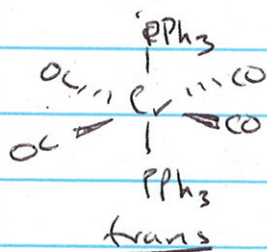 PPh3
OC CO
Cr
OC CO
PPh3
trans